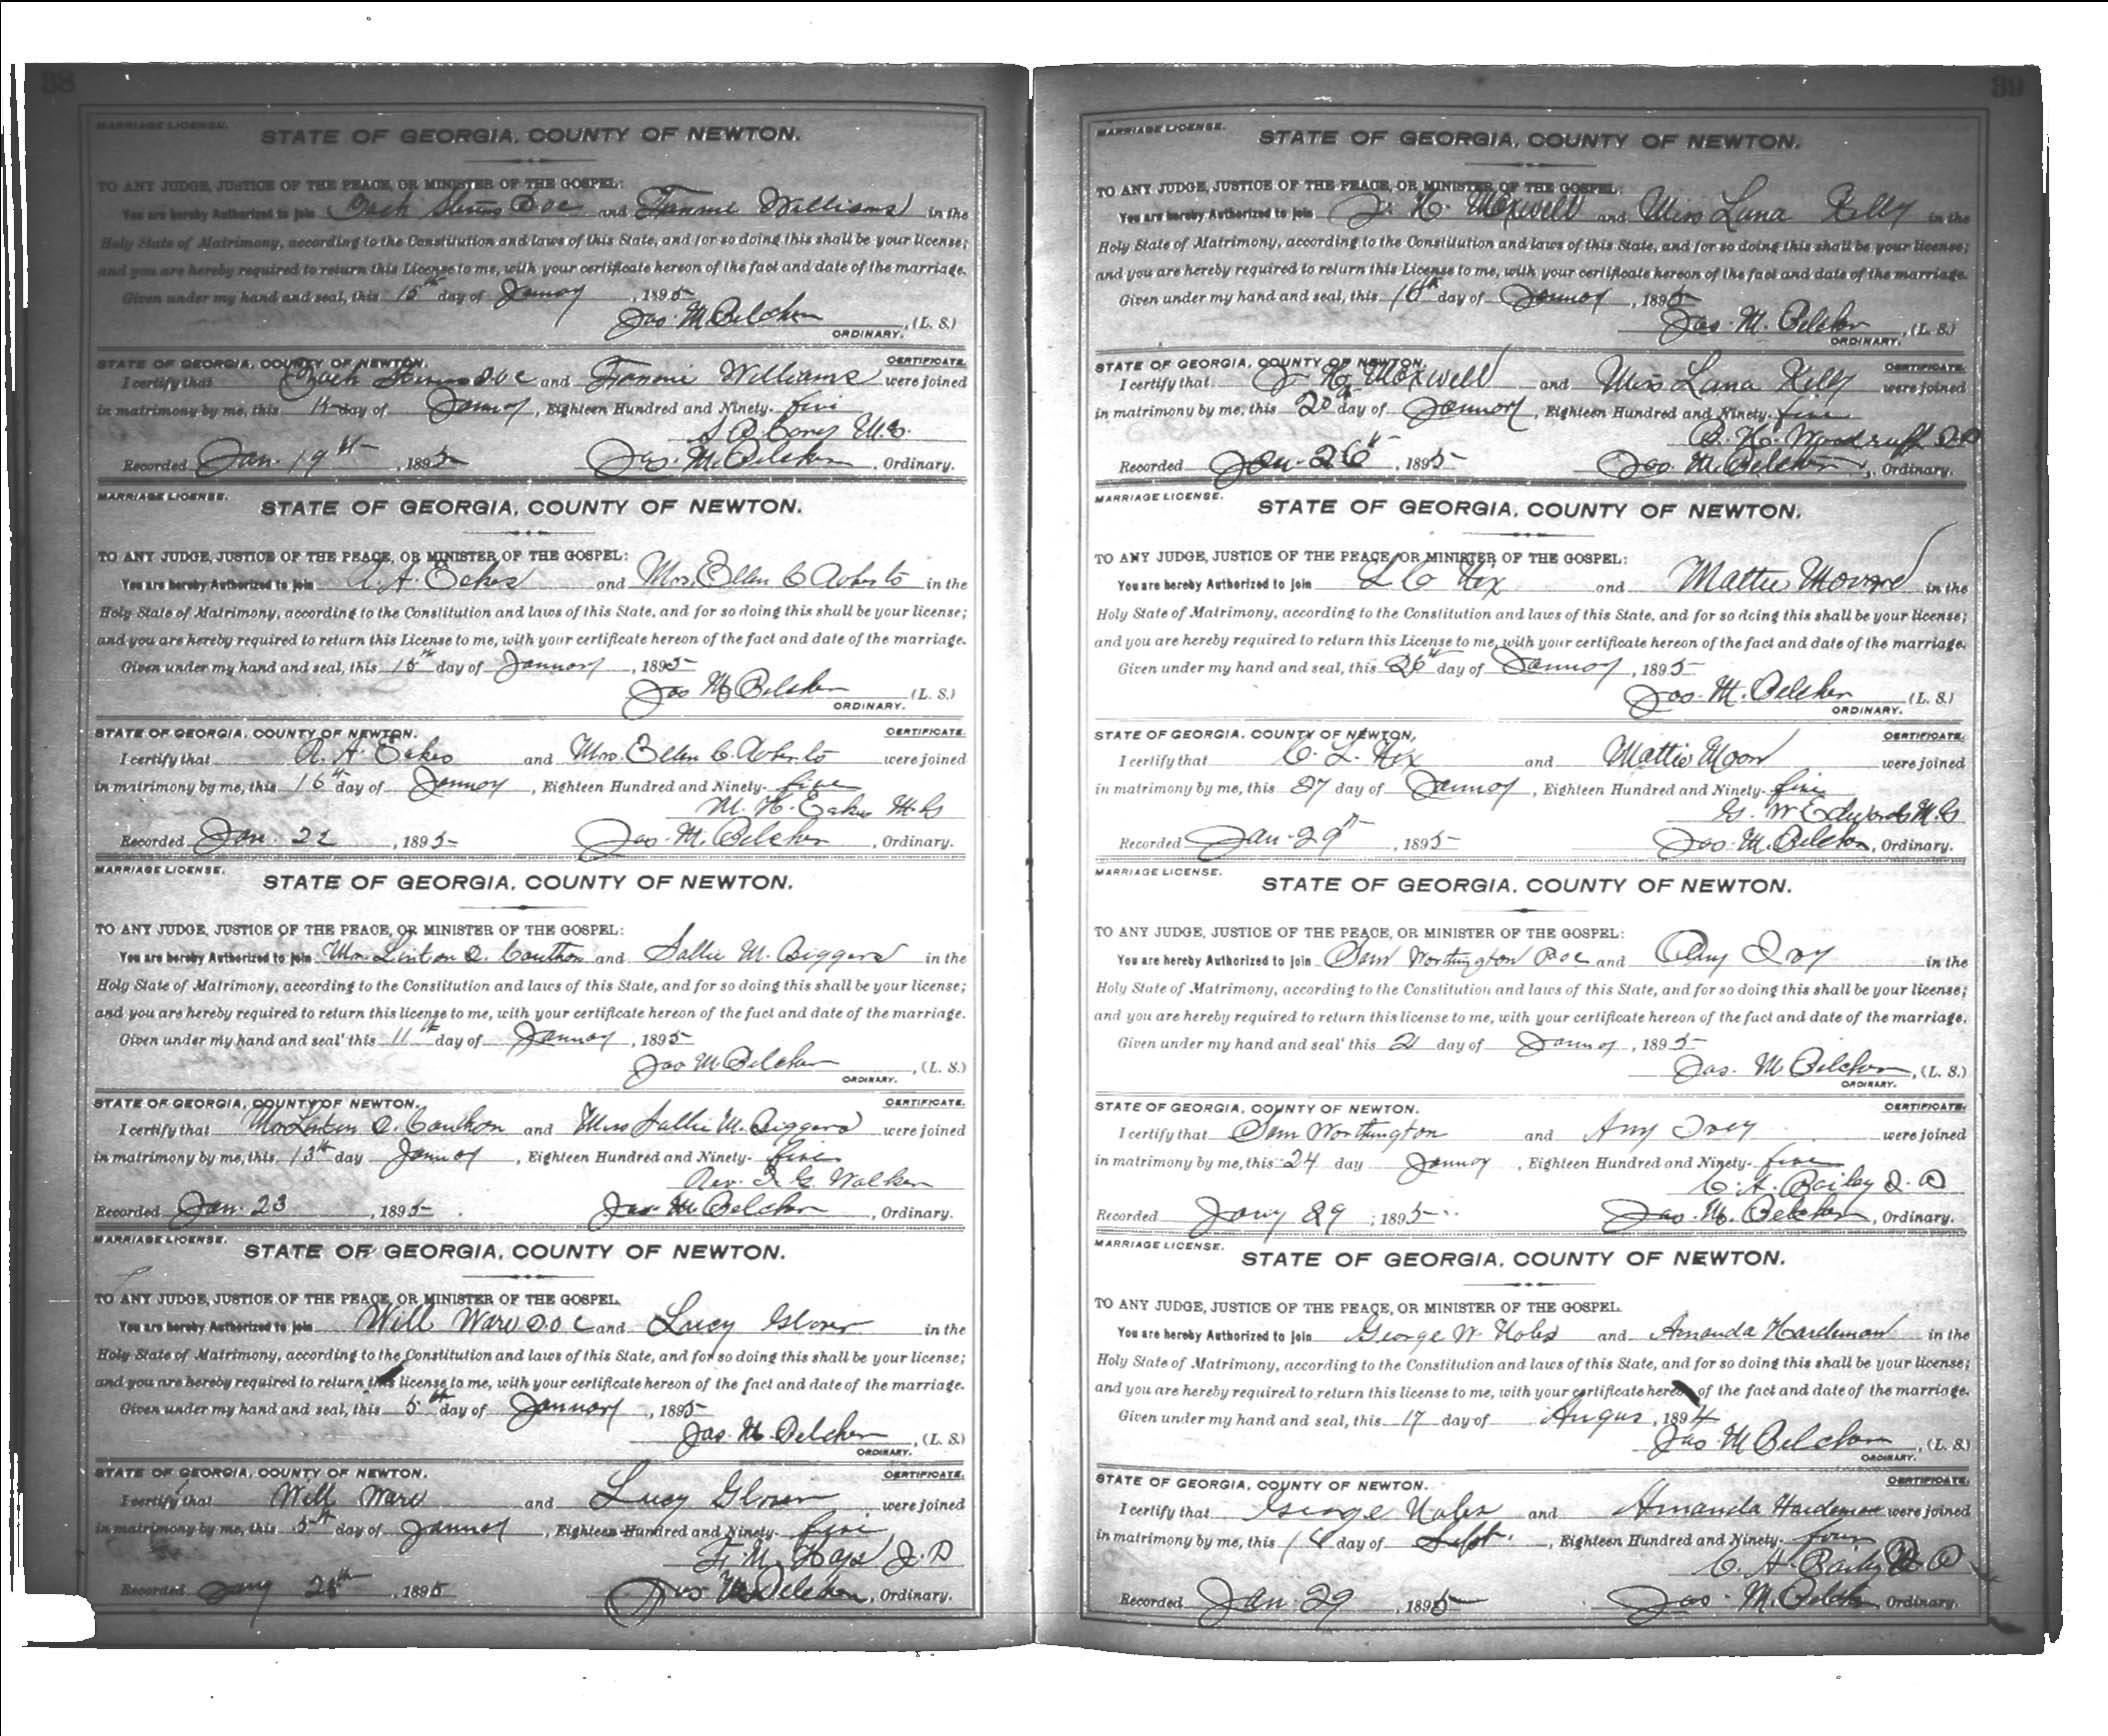 38
MARRIAGE LICENSE.
STATE OF GEORGIA, COUNTY OF NEWTON.
TO ANY JUDGE, JUSTICE OF THE PEACE, OR MINISTER OF THE GOSPEL:
You are hereby Authorized to join and Fannie Williams in the
Holy State of Matrimony, according to the Constitution and laws of this State, and for so doing this shall be your license;
and you are hereby required to return this License to me, with your certificate hereon of the fact and date of the marriage.
Given under my hand and seal, this 15th day of January, 1895
Jas. M. Belcher, (L. S.)
ORDINARY.
STATE OF GEORGIA, COUNTY OF NEWTON. CERTIFICATE.
I certify that and Fannie Williams were joined
in matrimony by me, this day of January, Eighteen Hundred and Ninety-five
Recorded Jan. 19th, 1895 Jas. M. Belcher, Ordinary.
MARRIAGE LICENSE.
STATE OF GEORGIA, COUNTY OF NEWTON.
TO ANY JUDGE, JUSTICE OF THE PEACE, OR MINISTER OF THE GOSPEL:
You are hereby Authorized to join and Mrs. Ellen C. Roberts in the
Holy State of Matrimony, according to the Constitution and laws of this State, and for so doing this shall be your license;
and you are hereby required to return this License to me, with your certificate hereon of the fact and date of the marriage.
Given under my hand and seal, this 15th day of January, 1895
Jas M. Belcher (L. S.)
ORDINARY.
STATE OF GEORGIA, COUNTY OF NEWTON. CERTIFICATE.
I certify that R. A. Eakes and Mrs. Ellen C. Roberts were joined
in matrimony by me, this 16th day of January, Eighteen Hundred and Ninety-five
M. H. Eakes M.G
Recorded Jan. 22, 1895 Jas. M. Belcher, Ordinary.
MARRIAGE LICENSE.
STATE OF GEORGIA, COUNTY OF NEWTON.
TO ANY JUDGE, JUSTICE OF THE PEACE, OR MINISTER OF THE GOSPEL:
You are hereby Authorized to join Mr. Linton D. and Sallie M. Biggers in the
Holy State of Matrimony, according to the Constitution and laws of this State, and for so doing this shall be your license;
and you are hereby required to return this license to me, with your certificate hereon of the fact and date of the marriage.
Given under my hand and seal this 11th day of January, 1895
Jas M. Belcher, (L. S.)
ORDINARY.
STATE OF GEORGIA, COUNTY OF NEWTON. CERTIFICATE.
I certify that Mr Linton D. and Miss Sallie M. Biggers were joined
in matrimony by me, this 13th day January, Eighteen Hundred and Ninety-five
Rev. Walker
Recorded Jan. 23, 1895 Jas. M. Belcher, Ordinary.
MARRIAGE LICENSE.
STATE OF GEORGIA, COUNTY OF NEWTON.
TO ANY JUDGE, JUSTICE OF THE PEACE, OR MINISTER OF THE GOSPEL.
You are hereby Authorized to join Will Ward and Lucy Glover in the
Holy State of Matrimony, according to the Constitution and laws of this State, and for so doing this shall be your license;
and you are hereby required to return this license to me, with your certificate hereon of the fact and date of the marriage.
Given under my hand and seal, this 5th day of January, 1895
Jas. M. Belcher, (L. S.)
ORDINARY.
STATE OF GEORGIA, COUNTY OF NEWTON. CERTIFICATE.
I certify that Will Ward and Lucy Glover were joined
in matrimony by me, this 5th day of January, Eighteen Hundred and Ninety-five
F. M. Hays J. P
Recorded Jany, 1895 Jas M. Belcher, Ordinary.
39
MARRIAGE LICENSE.
STATE OF GEORGIA, COUNTY OF NEWTON.
TO ANY JUDGE, JUSTICE OF THE PEACE, OR MINISTER OF THE GOSPEL:
You are hereby Authorized to join J. H. Maxwell and Miss Lana Kelly in the
Holy State of Matrimony, according to the Constitution and laws of this State, and for so doing this shall be your license;
and you are hereby required to return this License to me, with your certificate hereon of the fact and date of the marriage.
Given under my hand and seal, this 16th day of January, 1895
Jas. M. Belcher, (L. S.)
ORDINARY.
STATE OF GEORGIA, COUNTY OF NEWTON. CERTIFICATE.
I certify that J. H. Maxwell and Miss Lana Kelly were joined
in matrimony by me, this 20th day of January, Eighteen Hundred and Ninety-five
Woodruff J.P
Recorded Jan. 26th, 1895 Jas M. Belcher, Ordinary.
MARRIAGE LICENSE.
STATE OF GEORGIA, COUNTY OF NEWTON.
TO ANY JUDGE, JUSTICE OF THE PEACE, OR MINISTER OF THE GOSPEL:
You are hereby Authorized to join L C Hix and Mattie in the
Holy State of Matrimony, according to the Constitution and laws of this State, and for so doing this shall be your license;
and you are hereby required to return this License to me, with your certificate hereon of the fact and date of the marriage.
Given under my hand and seal, this 26th day of January, 1895
Jas. M. Belcher (L. S.)
ORDINARY.
STATE OF GEORGIA, COUNTY OF NEWTON, CERTIFICATE.
I certify that C. L. Hix and Mattie Moon were joined
in matrimony by me, this 27 day of January, Eighteen Hundred and Ninety-five
G. W Edwards M.G
Recorded Jan. 29th, 1895 Jas. M. Belcher, Ordinary.
MARRIAGE LICENSE.
STATE OF GEORGIA, COUNTY OF NEWTON.
TO ANY JUDGE, JUSTICE OF THE PEACE, OR MINISTER OF THE GOSPEL:
You are hereby Authorized to join Sam Worthington and Ivy in the
Holy State of Matrimony, according to the Constitution and laws of this State, and for so doing this shall be your license;
and you are hereby required to return this license to me, with your certificate hereon of the fact and date of the marriage.
Given under my hand and seal this 21 day of January, 1895
Jas. M Belcher, (L. S.)
ORDINARY.
STATE OF GEORGIA, COUNTY OF NEWTON. CERTIFICATE.
I certify that Sam Worthington and Amy Ivey were joined
in matrimony by me, this 24 day January, Eighteen Hundred and Ninety-five
C. A. Bailey J. P
Recorded Jany 29, 1895 Jas. M. Belcher, Ordinary.
MARRIAGE LICENSE.
STATE OF GEORGIA, COUNTY OF NEWTON.
TO ANY JUDGE, JUSTICE OF THE PEACE, OR MINISTER OF THE GOSPEL.
You are hereby Authorized to join George W. and Amanda Hardeman in the
Holy State of Matrimony, according to the Constitution and laws of this State, and for so doing this shall be your license;
and you are hereby required to return this license to me, with your certificate hereon of the fact and date of the marriage.
Given under my hand and seal, this 17 day of Augus, 1894
Jas M Belcher, (L. S.)
ORDINARY.
STATE OF GEORGIA, COUNTY OF NEWTON. CERTIFICATE.
I certify that George and Amanda Hardeman were joined
in matrimony by me, this day of Sept., Eighteen Hundred and Ninety-four
C. A. Baily
Recorded Jan. 29, 1895 Jas. M. Belcher, Ordinary.